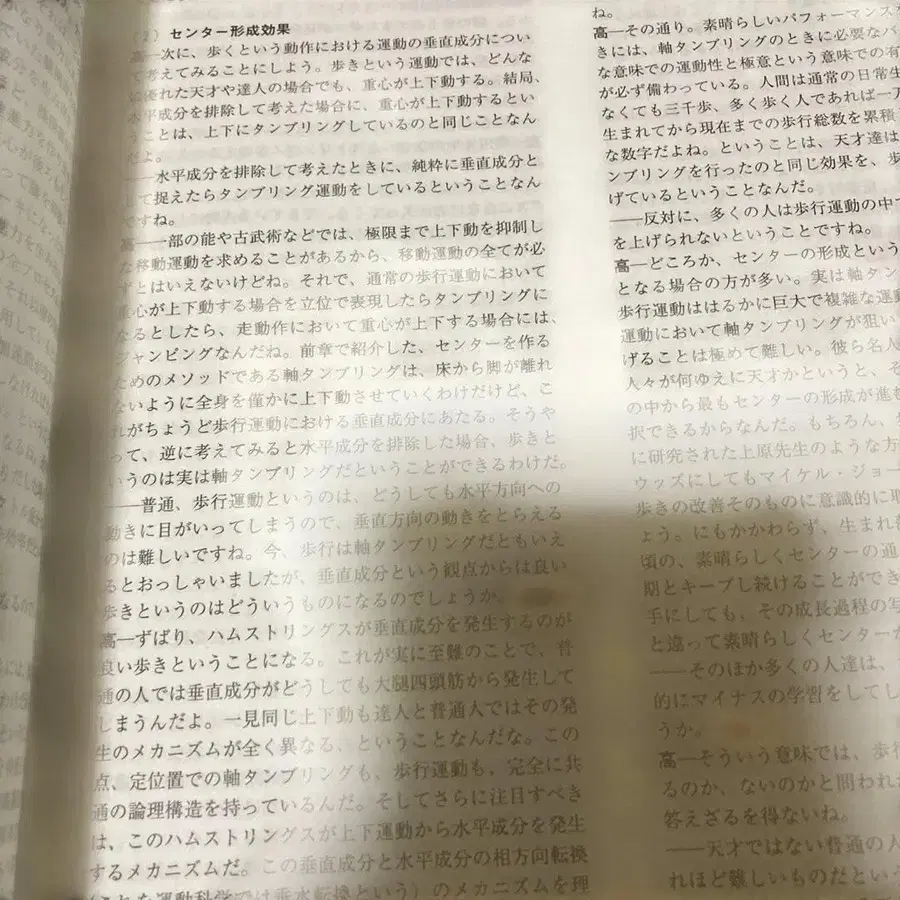 (2) センター形成効果
高―次に、歩くという動作における運動の垂直成分につい
て考えてみることにしよう。歩きという運動では、どんな
に優れた天才や達人の場合でも、重心が上下動する。結局、
水平成分を排除して考えた場合に、重心が上下動するとい
うことは、上下にタンブリングしているのと同じことなん
だよ。
――水平成分を排除して考えたときに、純粋に垂直成分と
して捉えたらタンブリング運動をしているということなん
ですね。
高―一部の能や古武術などでは、極限まで上下動を抑制し
た移動運動を求めることがあるから、移動運動の全てが必
ずとはいえないけどね。それで、通常の歩行運動において
重心が上下動する場合を立位で表現したらタンブリングに
なるとしたら、走動作において重心が上下する場合には、
ジャンピングなんだね。前章で紹介した、センターを作る
ためのメソッドである軸タンブリングは、床から脚が離れ
ないように全身を僅かに上下動させていくわけだけど、こ
れがちょうど歩行運動における垂直成分にあたる。そうや
って、逆に考えてみると水平成分を排除した場合、歩きと
いうのは実は軸タンブリングだということができるわけだ。
――普通、歩行運動というのは、どうしても水平方向への
動きに目がいってしまうので、垂直方向の動きをとらえる
のは難しいですね。今、歩行は軸タンブリングだともいえ
るとおっしゃいましたが、垂直成分という観点からは良い
歩きというのはどういうものになるのでしょうか。
高―ずばり、ハムストリングスが垂直成分を発生するのが
良い歩きということになる。これが実に至難のことで、普
通の人では垂直成分がどうしても大腿四頭筋から発生して
しまうんだよ。一見同じ上下動も達人と普通人ではその発
生のメカニズムが全く異なる、ということなんだな。この
点、定位置での軸タンブリングも、歩行運動も、完全に共
通の論理構造を持っているんだ。そしてさらに注目すべき
は、このハムストリングスが上下運動から水平成分を発生
するメカニズムだ。この垂直成分と水平成分の相方向転換
(これを運動科学では垂水転換という)のメカニズムを理
ね。
高―その通り。素晴らしいパフォーマンスが
きには、軸タンブリングのときに必要なパ
な意味での運動性と極意という意味での有
が必ず備わっている。人間は通常の日常生
なくても三千歩、多く歩く人であれば一万
生まれてから現在までの歩行総数を累積
な数字だよね。ということは、天才達は
ンブリングを行ったのと同じ効果を、歩
げているということなんだ。
――反対に、多くの人は歩行運動の中で
を上げられないということですね。
高―どころか、センターの形成という
となる場合の方が多い。実は軸タン
歩行運動ははるかに巨大で複雑な運動
運動において軸タンブリングが狙い
げることは極めて難しい。彼ら名人
人々が何ゆえに天才かというと、そ
の中から最もセンターの形成が進む
択できるからなんだ。もちろん、
に研究された上原先生のような方
ウッズにしてもマイケル・ジョー
歩きの改善そのものに意識的に取
ょう。にもかかわらず、生まれ
頃の、素晴らしくセンターの通
期とキープし続けることができ
手にしても、その成長過程の写
と違って素晴らしくセンターが
――そのほか多くの人達は、
的にマイナスの学習をしてし
うか。
高―そういう意味では、歩行
るのか、ないのかと問われれ
答えざるを得ないね。
――天才ではない普通の人
れほど難しいものだという